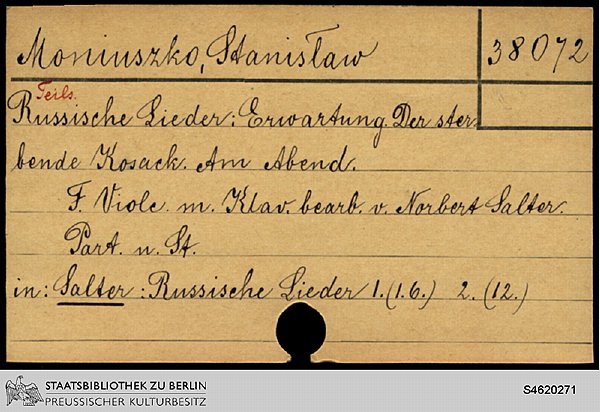 Moniuszko, Stanisław
38072
Teils.
Russische Lieder: Erwartung. Der ster-
bende Kosack. Am Abend.
F. Violc. m. Klav. bearb. v. Norbert Salter.
Part. u. St.
in: Salter: Russische Lieder 1. (1.6.) 2. (12.)
STAATSBIBLIOTHEK ZU BERLIN
PREUSSISCHER KULTURBESITZ
S4620271